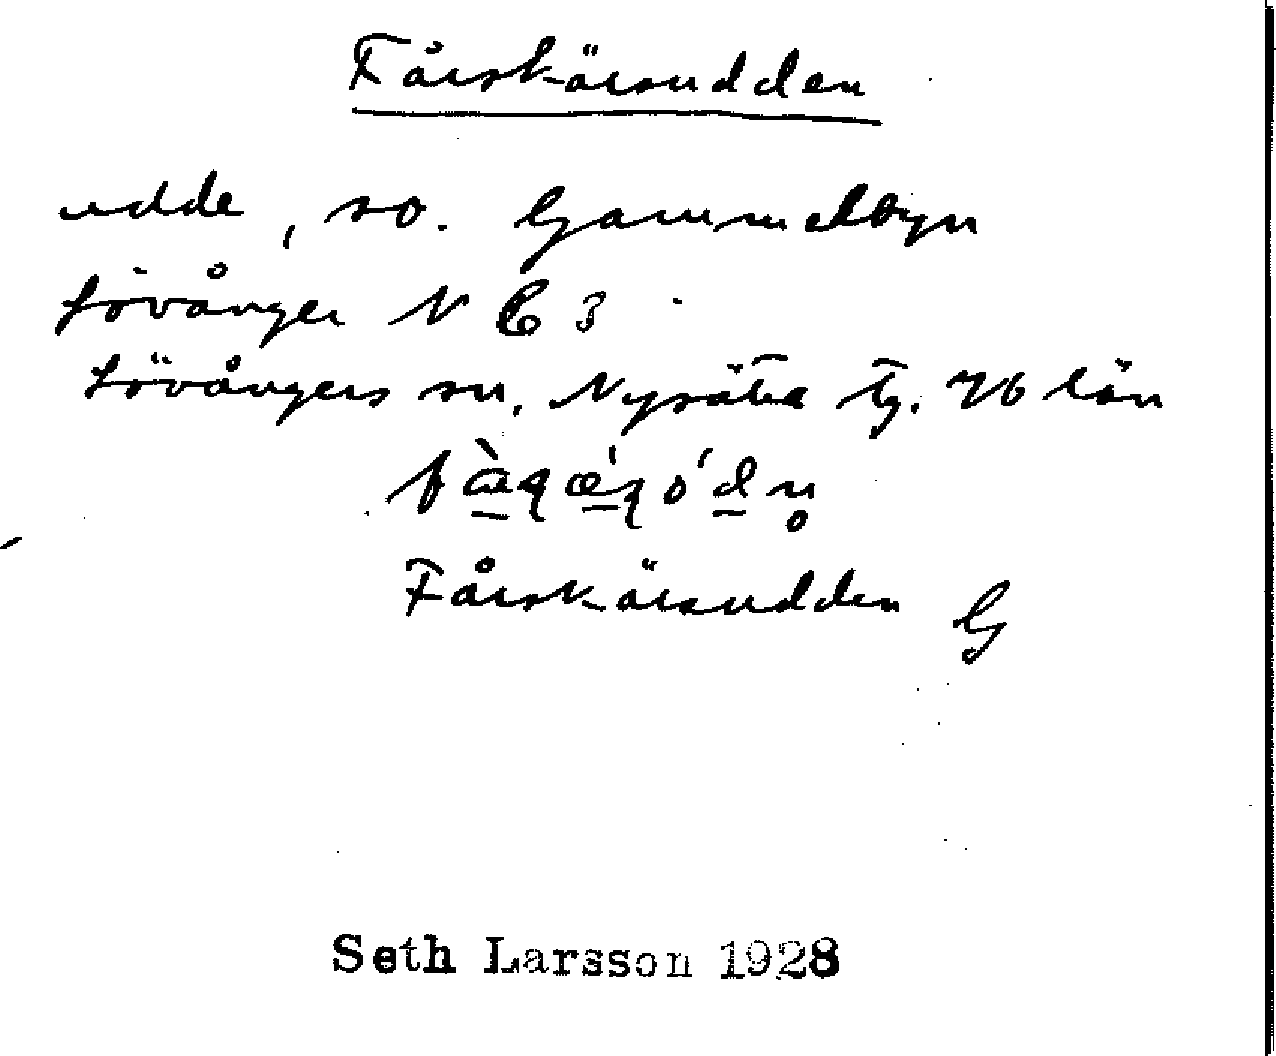 Fårskärsudden
udde, so. Gammelbyn
Lövånger N C 3
Lövångers sn, Nysätra tg. Vb län
Fårskärsudden G
Seth Larsson 1928